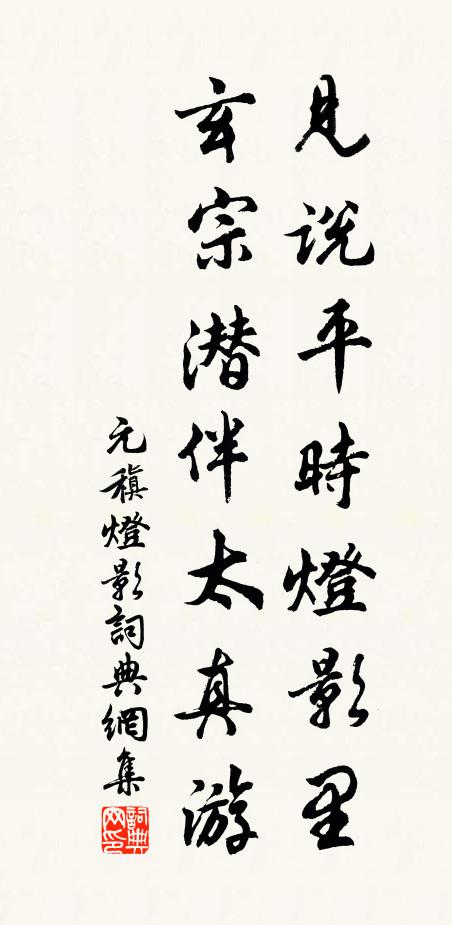 見説平時燈影里
玄宗潜伴太真游
元稹燈影詞典網集
詞典網印